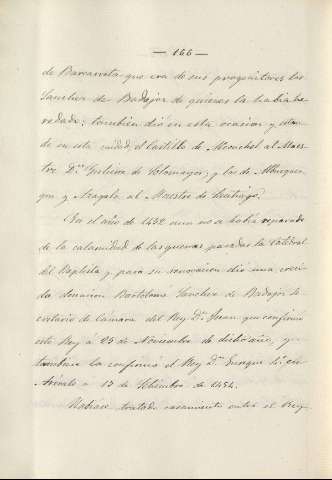 — 166 —
de Barcarrota que era de sus progenitores los
Sanchez de Badajoz de quienes la habia he-
redado: tambien dió en esta ocasion y estan-
do en esta ciudad, el Castillo de Azauchal al Maes-
tre Dn. Gutierre de Sotomayor; y los de Alburquer-
que y Azagala al Maestre de Santiago.
En el año de 1452 aun no se habia reparado
de la calamidad de las guerras pasadas la Catedral
del Baptista y para su renovacion dió una creci-
da donacion Bartolomé Sanchez de Badajoz Se-
cretario de Cámara del Rey Dn. Juan que confirmó
este Rey a 25 de Noviembre de dicho año, y
tambien la confirmó el Rey Dn. Enrique 4º. en
Arévalo a 15 de Setiembre de 1454.
Habiase tratado casamiento entre el Rey